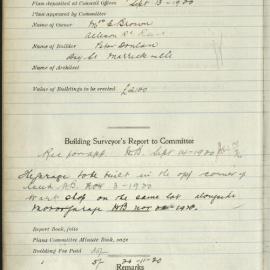 Plan deposited at Council Offices Sept 13-1920
Plan approved by Committee
Name of Owner Mrs L Brown
Allison Rd Rand
Name of Builder Peter Donlan
Hay St Marrickville
Name of Architect
Value of Buildings to be erected £200
Building Surveyor's Report to Committee
Rec for app. WB. Sept 14-1920
The garage to be built in the opp corner of
land WB Nov 3-1920
Work shop on the same lot alongside
Motor garage WB Nov 1920.
Report Book, folio
Plans Committee Minute Book, page
Building Fee Paid 15/-
5/- 24-11-20
Remarks